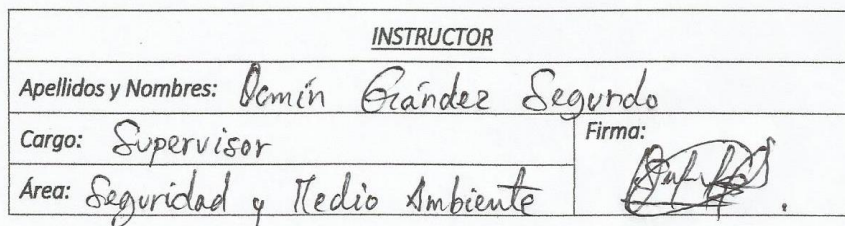 INSTRUCTOR
Apellidos y Nombres: Domín Grández Segundo
Cargo: Supervisor
Firma:
Área: Seguridad y Medio Ambiente